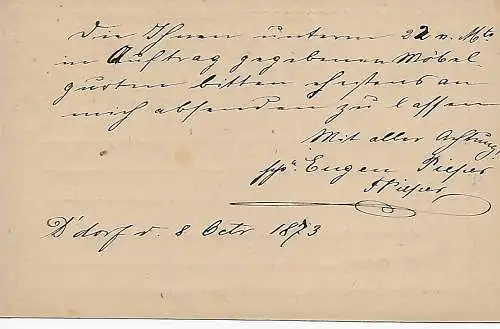 Die Ihnen unterm 22 v. Mts
in Auftrag gegebenen Möbel
quasten bitten ehestens an
mich absenden zu lassen
Mit aller Achtung,
Eugen Pieper
Pieper
D'dorf d. 8 Octr 1873